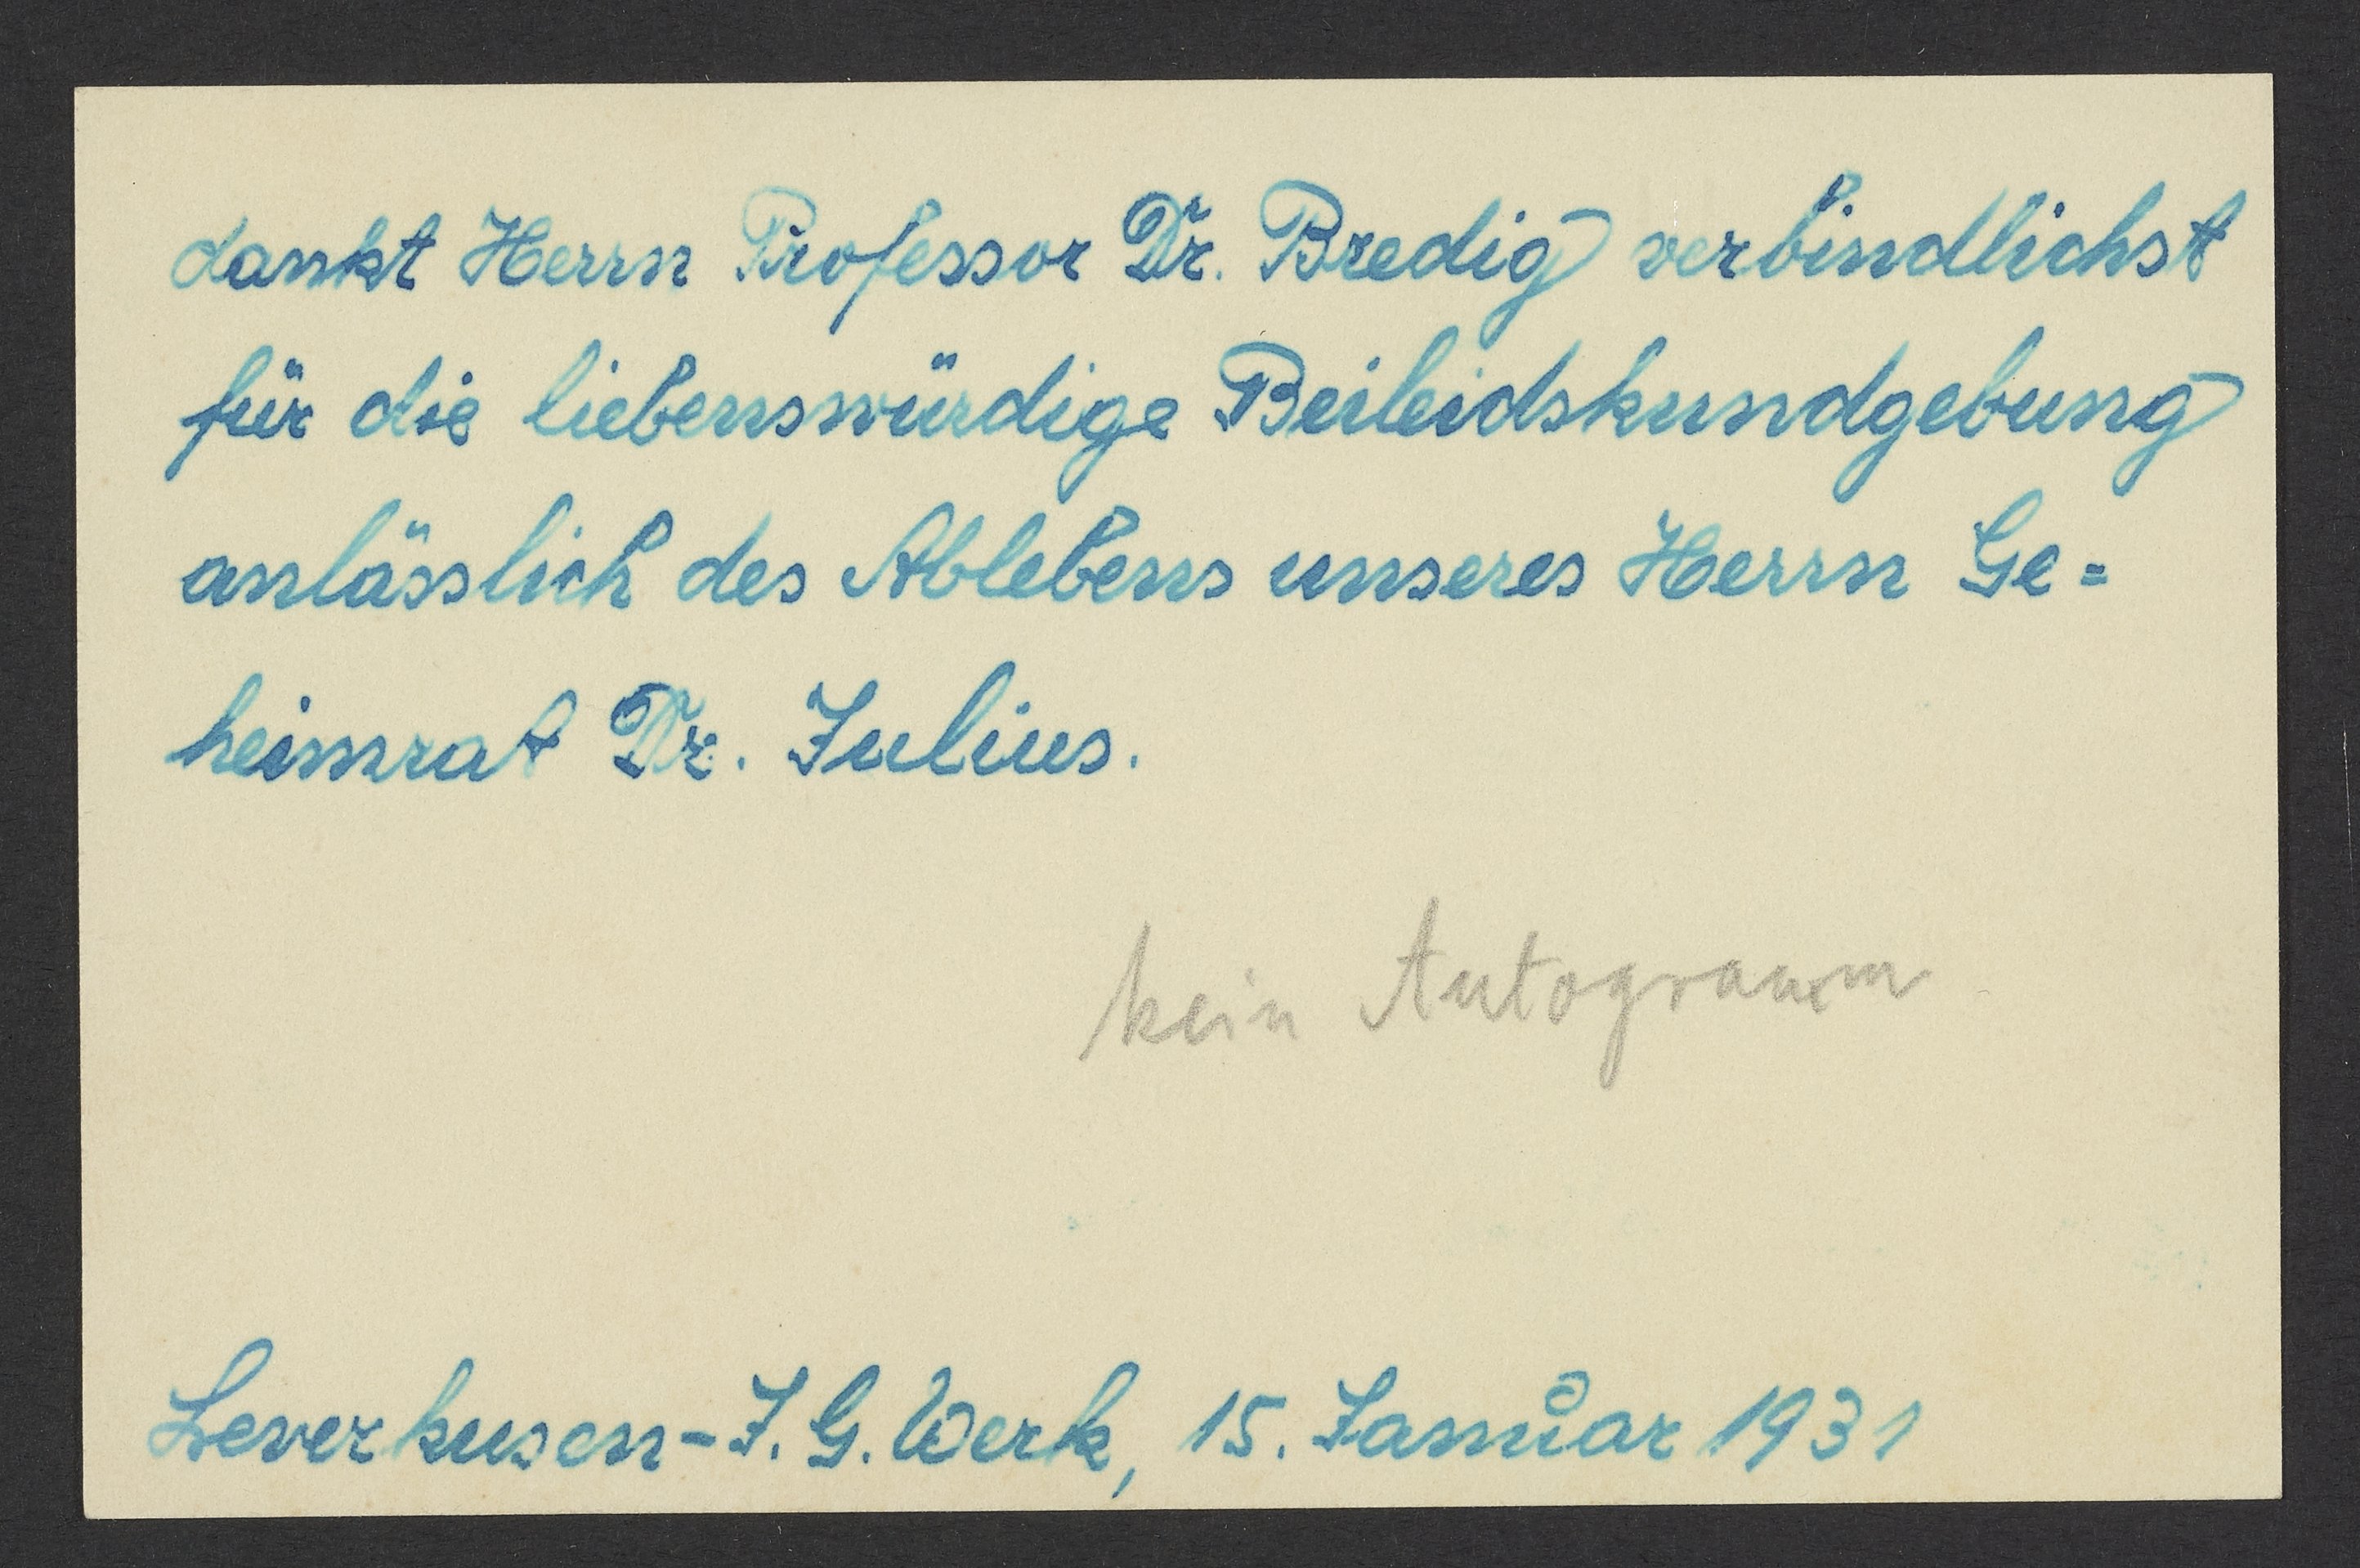 dankt Herrn Professor Dr. Bredig verbindlichst
für die liebenswürdige Beileidskundgebung
anlässlich des Ablebens unseres Herrn Ge=
heimrat Dr. Julius.
kein Autogramm
Leverkusen-I. G. Werk, 15. Januar 1931